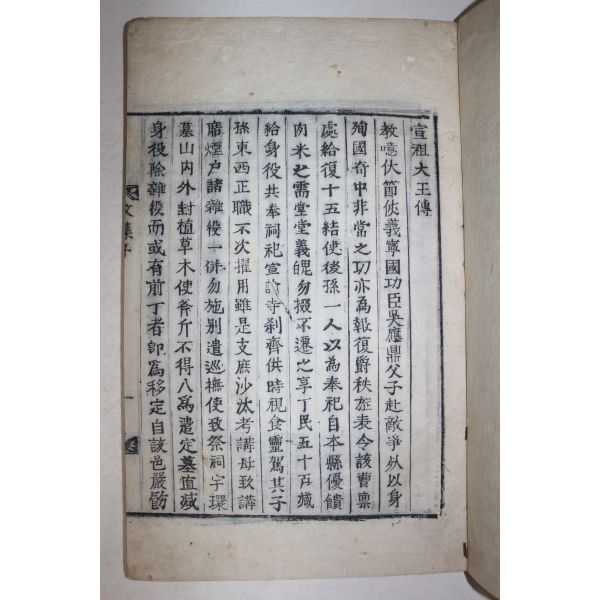 宣祖大王傳
教噫伏節仗義寧國功臣吳應鼎父子赴敵爭死以身
殉國奇中非常之功亦為報復爵秩旌表令該曹稟
處給復十五結使後孫一人以為奉祀自本縣優饋
肉米之需堂堂義魄勿掇不遷之享丁民五十石減
給身役共奉祠祀宣諭寺刹齊供時視食靈駕其子
孫東西正職不次擢用雖是支庶沙汰考講毋致講
磨煙户諸雜役一併勿施別遣巡撫使致祭祠宇環
墓山內外封植草木使斧斤不得入為遣定墓直減
身役除雜役而或有前丁者即為移定自該邑嚴飭
文集序
一